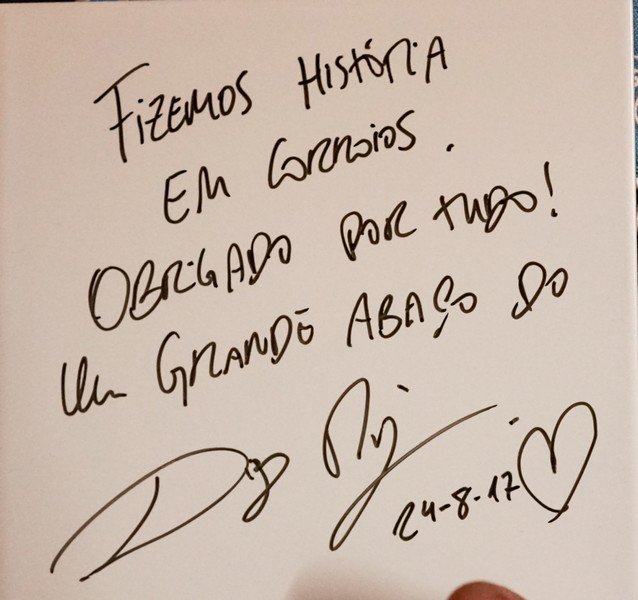 FIZEMOS HISTÓRIA
EM CORROIOS.
OBRIGADO POR TUDO!
Um GRANDE ABAÇO DO
24-8-17